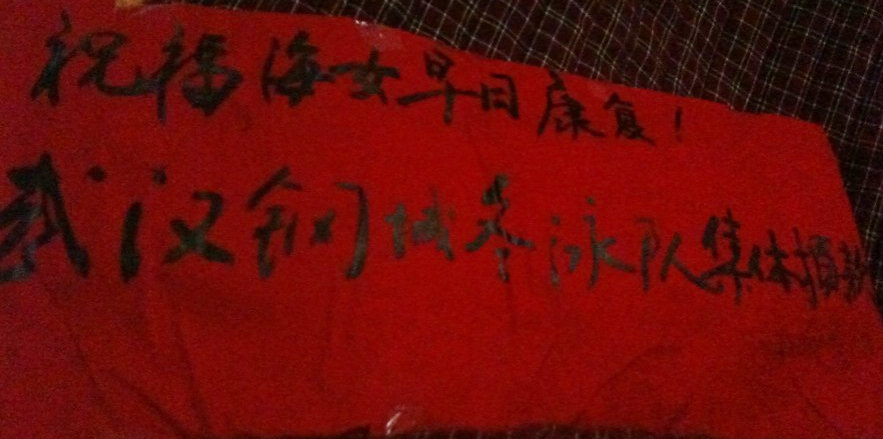 祝福海女早日康复！
武汉钢城冬泳队集体捐款